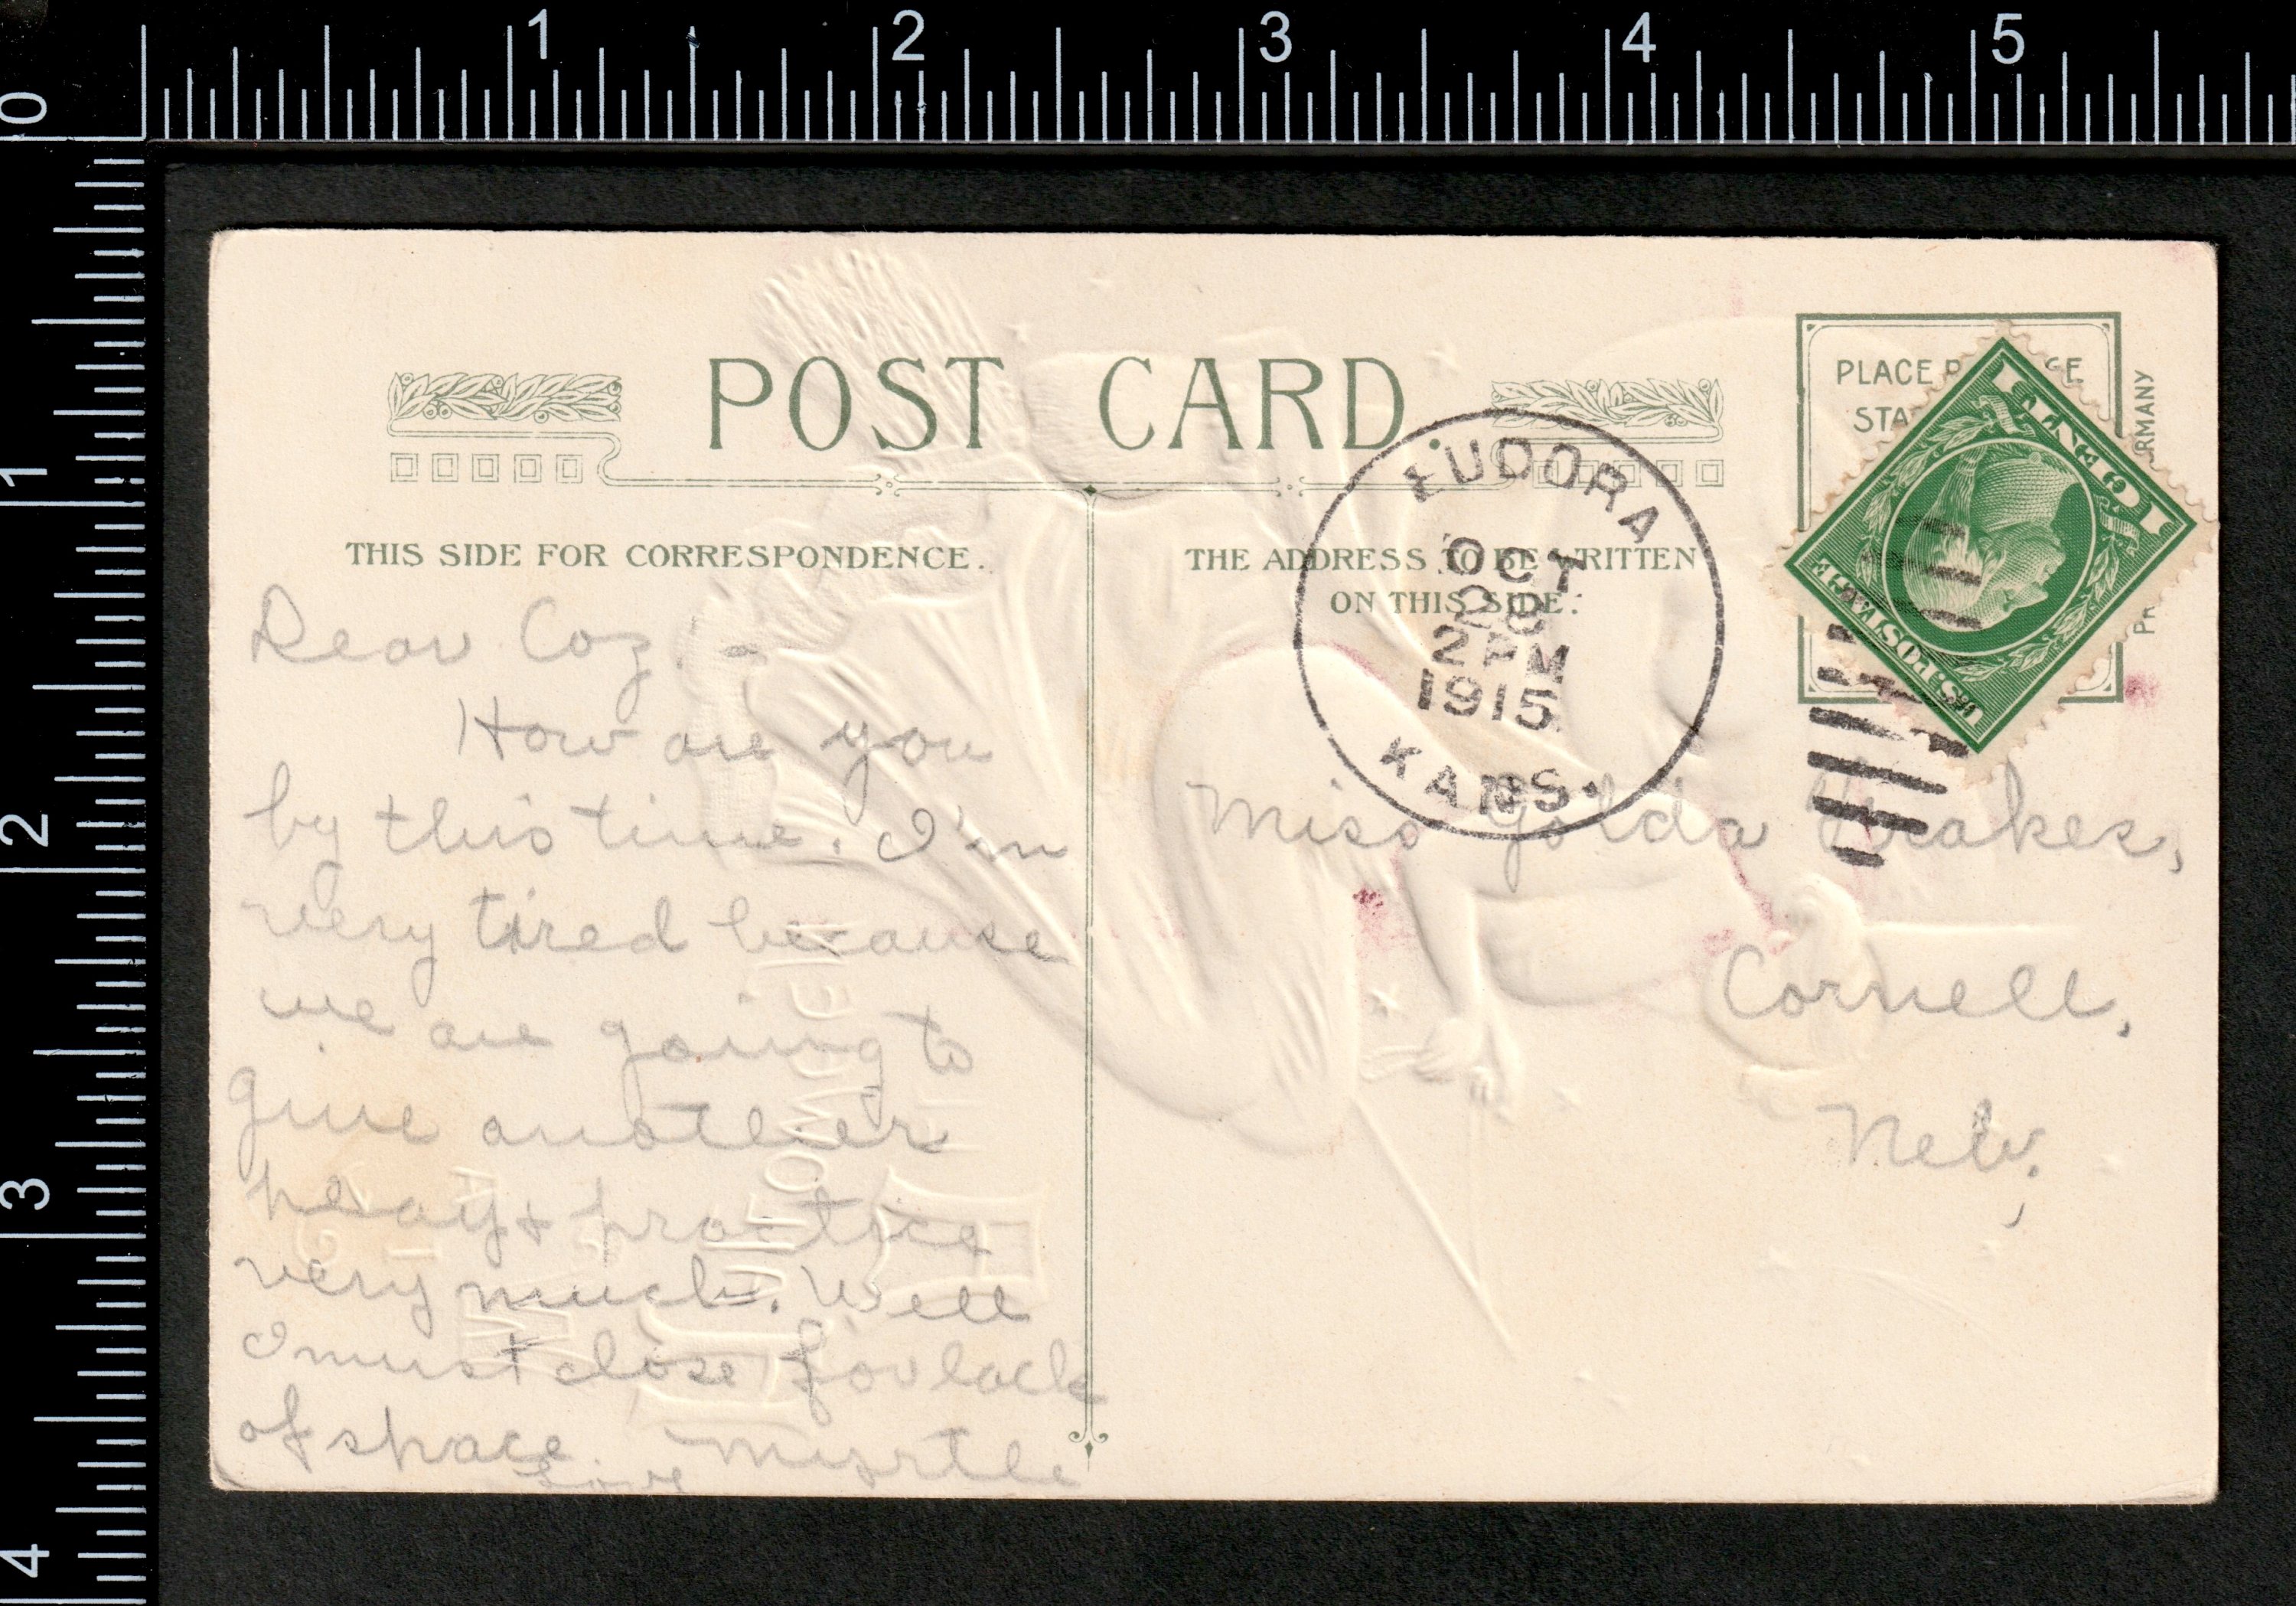 1 2 3 4 5
0
1
2
3
4
POST CARD.
THIS SIDE FOR CORRESPONDENCE.
THE ADDRESS TO BE WRITTEN
ON THIS SIDE.
PLACE
STA
RMANY
PR
1 CENT 1
U.S. POSTAGE
EUDORA
OCT
28
2 PM
1915
KANS.
Dear Coz. -
How are you
by this time. I'm
very tired because
we are going to
give another
play & practice
very much. Well
I must close for lack
of space
Love Myrtle
Miss Golda
Cornell,
Neb.
HALLOWE'EN